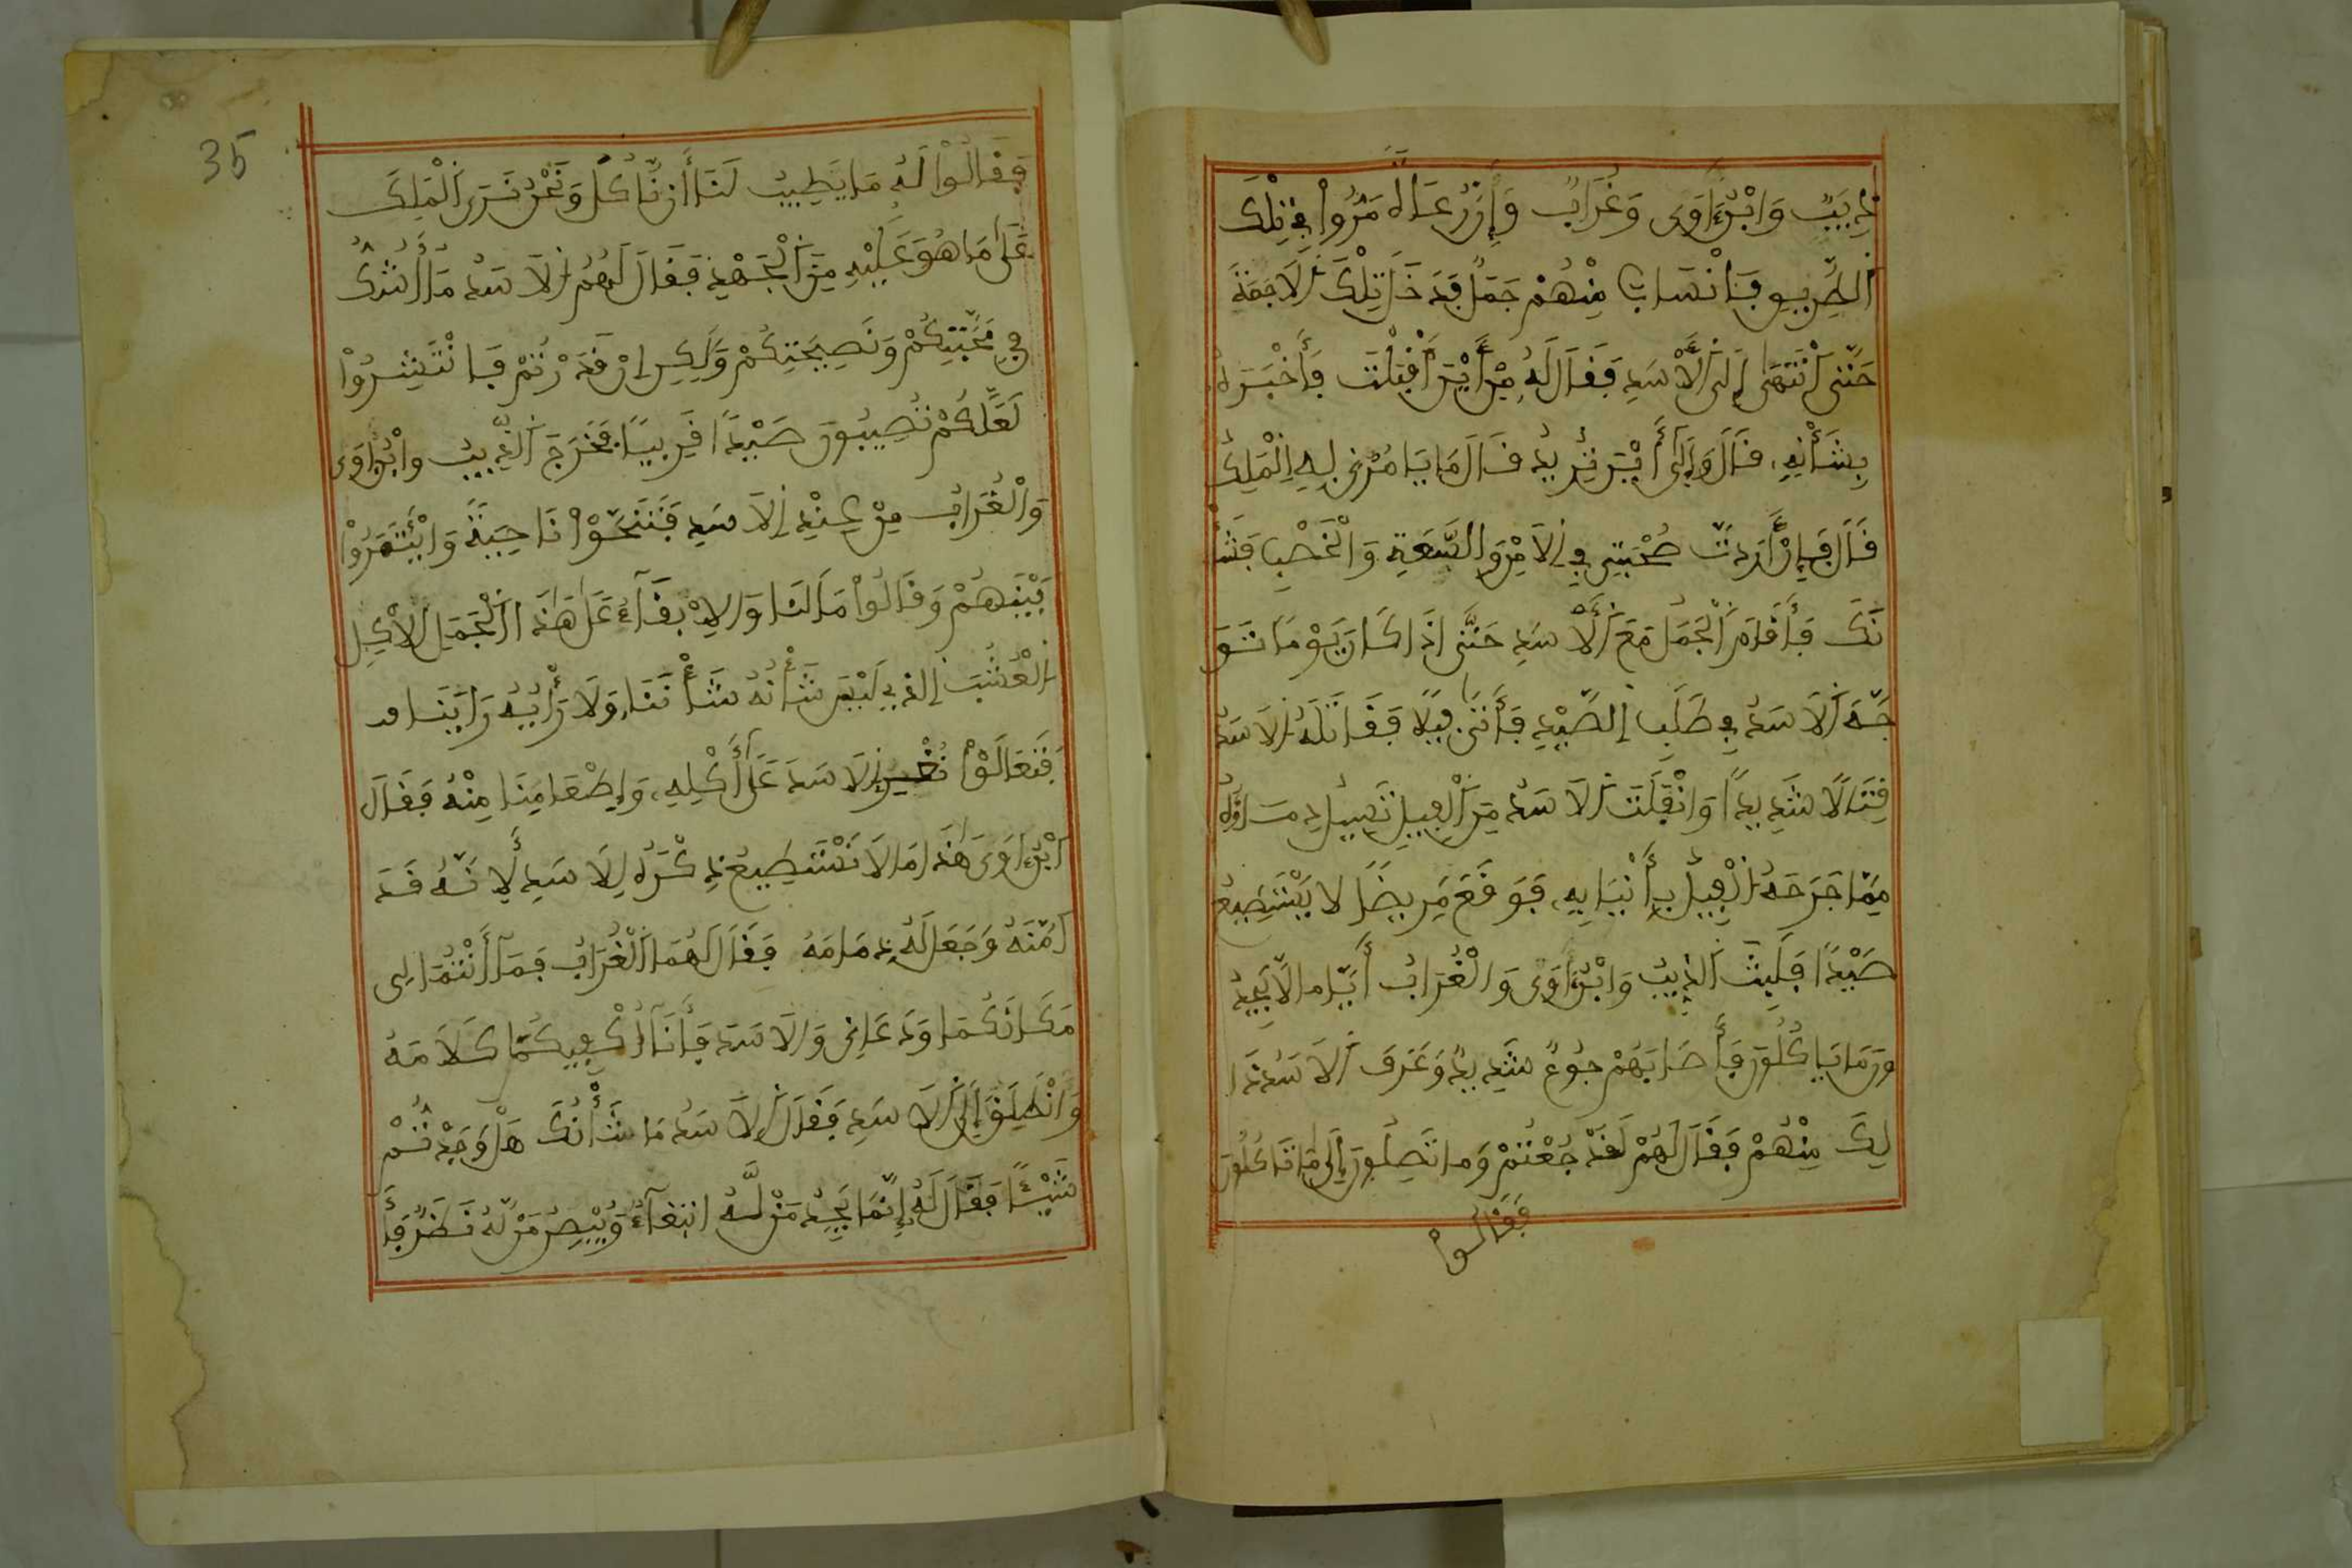 ذِيبٌ وَابْنُ ءَاوَى وَغُرَابٌ وَإِنَّ رُعَاةً مَرُّواْ فِي تِلْكَ
اَلطَّرِيقِ فَانْسَابَ مِنْهُمْ جَمَلٌ فَدَخَلَ تِلْكَ اَلاَجَمَةَ
حَتَّى اَنْتَهَى إِلَى اَلأَسَدِ فَقَالَ لَهُ مِنْ أَيْنَ أَقْبَلْتَ فَأَخْبَرَهُ
بِشَأْنِهِ قَالَ وَإِلَى أَيْنَ تُرِيدُ قَالَ مَا يَامُرُنِي بِهِ اِلْمَلِكُ
قَالَ فَإِنْ أَرَدْتَ صُحْبَتِي فِي اِلاَمْنِ وَالسَّعَةِ وَالْخَصْبِ فَشَأْ
نَكَ فَأَقَامَ اَلْجَمَلُ مَعَ اَلأَسَدِ حَتَّى إِذَا كَانَ يَوْمًا تَوَ
جَّهَ اَلاَسَدُ فِي طَلَبِ اِلصَّيْدِ فَأَتَى فِيلًا فَقَاتَلَهُ اُلاَسَدُ
قِتَالًا شَدِيدًا وَانْفَلَتَ اَلاَسَدُ مِنَ اَلْفِيلِ تَسِيلُ دِمَاؤُهُ
مِمَّا جَرَحَهُ اُلْفِيلُ بِأَنْيَابِهِ فَوَقَعَ مَرِيضًا لا يَسْتَطِيعُ
صَيْدًا فَلَبِثَ اَلذِّيبُ وَابْنُ ءَاوَى وَالْغُرَابُ أَيَّامًا لاَ يَجِدُ
ونَ مَا يَاكُلُونَ فَأَصَابَهُمْ جُوعٌ شَدِيدٌ وَعَرَفَ اَلاَسَدُ ذَا
لِكَ مِنْهُمْ فَقَالَ لَهُمْ لَقَدْ جُعْتُمْ وَمَا تَصِلُونَ إِلَى مَا تَاكُلُونَ
فَقَالُوا
35
فَقَالُواْ لَهُ مَا يَطِيبُ لَنَا أَن نَّاكُلَ وَنَحْنُ نَرَى اَلْمَلِكَ
عَلَى مَا هُوَ عَلَيْهِ مِنَ اَلْجَهْدِ فَقَالَ لَهُمُ اُلاَسَدُ مَا أَشُكُّ
فِي مَحَبَّتِكُمْ وَنَصِيحَتِكُمْ وَلَكِنِ إِنْ قَدَرْتُمْ فَانْتَشِرُواْ
لَعَلَّكُمْ تُصِيبُونَ صَيْدًا قَرِيبًا فَخَرَجَ اَلذِّيبُ وابْنُ ءَاوَى
وَالْغُرَابُ مِنْ عِنْدِ اِلاَسَدِ فَتَنَحَّوْا نَاحِيَةً وَائْتَمَرُواْ
بَيْنَهُمْ وَقَالُواْ مَا لَنَا وَالاِبْقَآءُ عَلَى هَذَا اَلْجَمَلِ الاكِلِ
اَلْعُشْبَ اِلذِي لَيْسَ شَأْنُهُ شَأْنَنَا وَلَا رَأْيُهُ رَايَنَا
فَتَعَالَوْا اَلاَسَدَ عَلَى أَكْلِهِ وَإِطْعَامِنَا مِنْهُ فَقَالَ
اَبْنُ ءَاوَى هَذَا مَا لاَ نَسْتَطِيعُ ذِكْرَهُ لِلاَسَدِ لِأَنَّهُ قَدَ
امَّنَهُ وَجَعَلَ لَهُ ذِمَامَهُ فَقَالَ لَهُمَا اَلْغُرَابُ فَمَآ أَنْتُمَا لِي
مَكَانَكُمَا وَدَعَانِي وَالاَسَدَ فَأَنَآ أَكْفِيكُمَا كَلاَمَهُ
وَانْطَلَقَ إِلَى اَلاَسَدِ فَقَالَ اَلاَسَدُ مَا شَأْنُكَ هَلْ وَجَدْتُمْ
شَيْئًا فَقَالَ لَهُ إِنَّمَا يَجِدُ مَن لَّهُ ابْتِغَآءٌ وَيُبْصِرُ مَن لَّهُ نَظَرٌ فَأَ